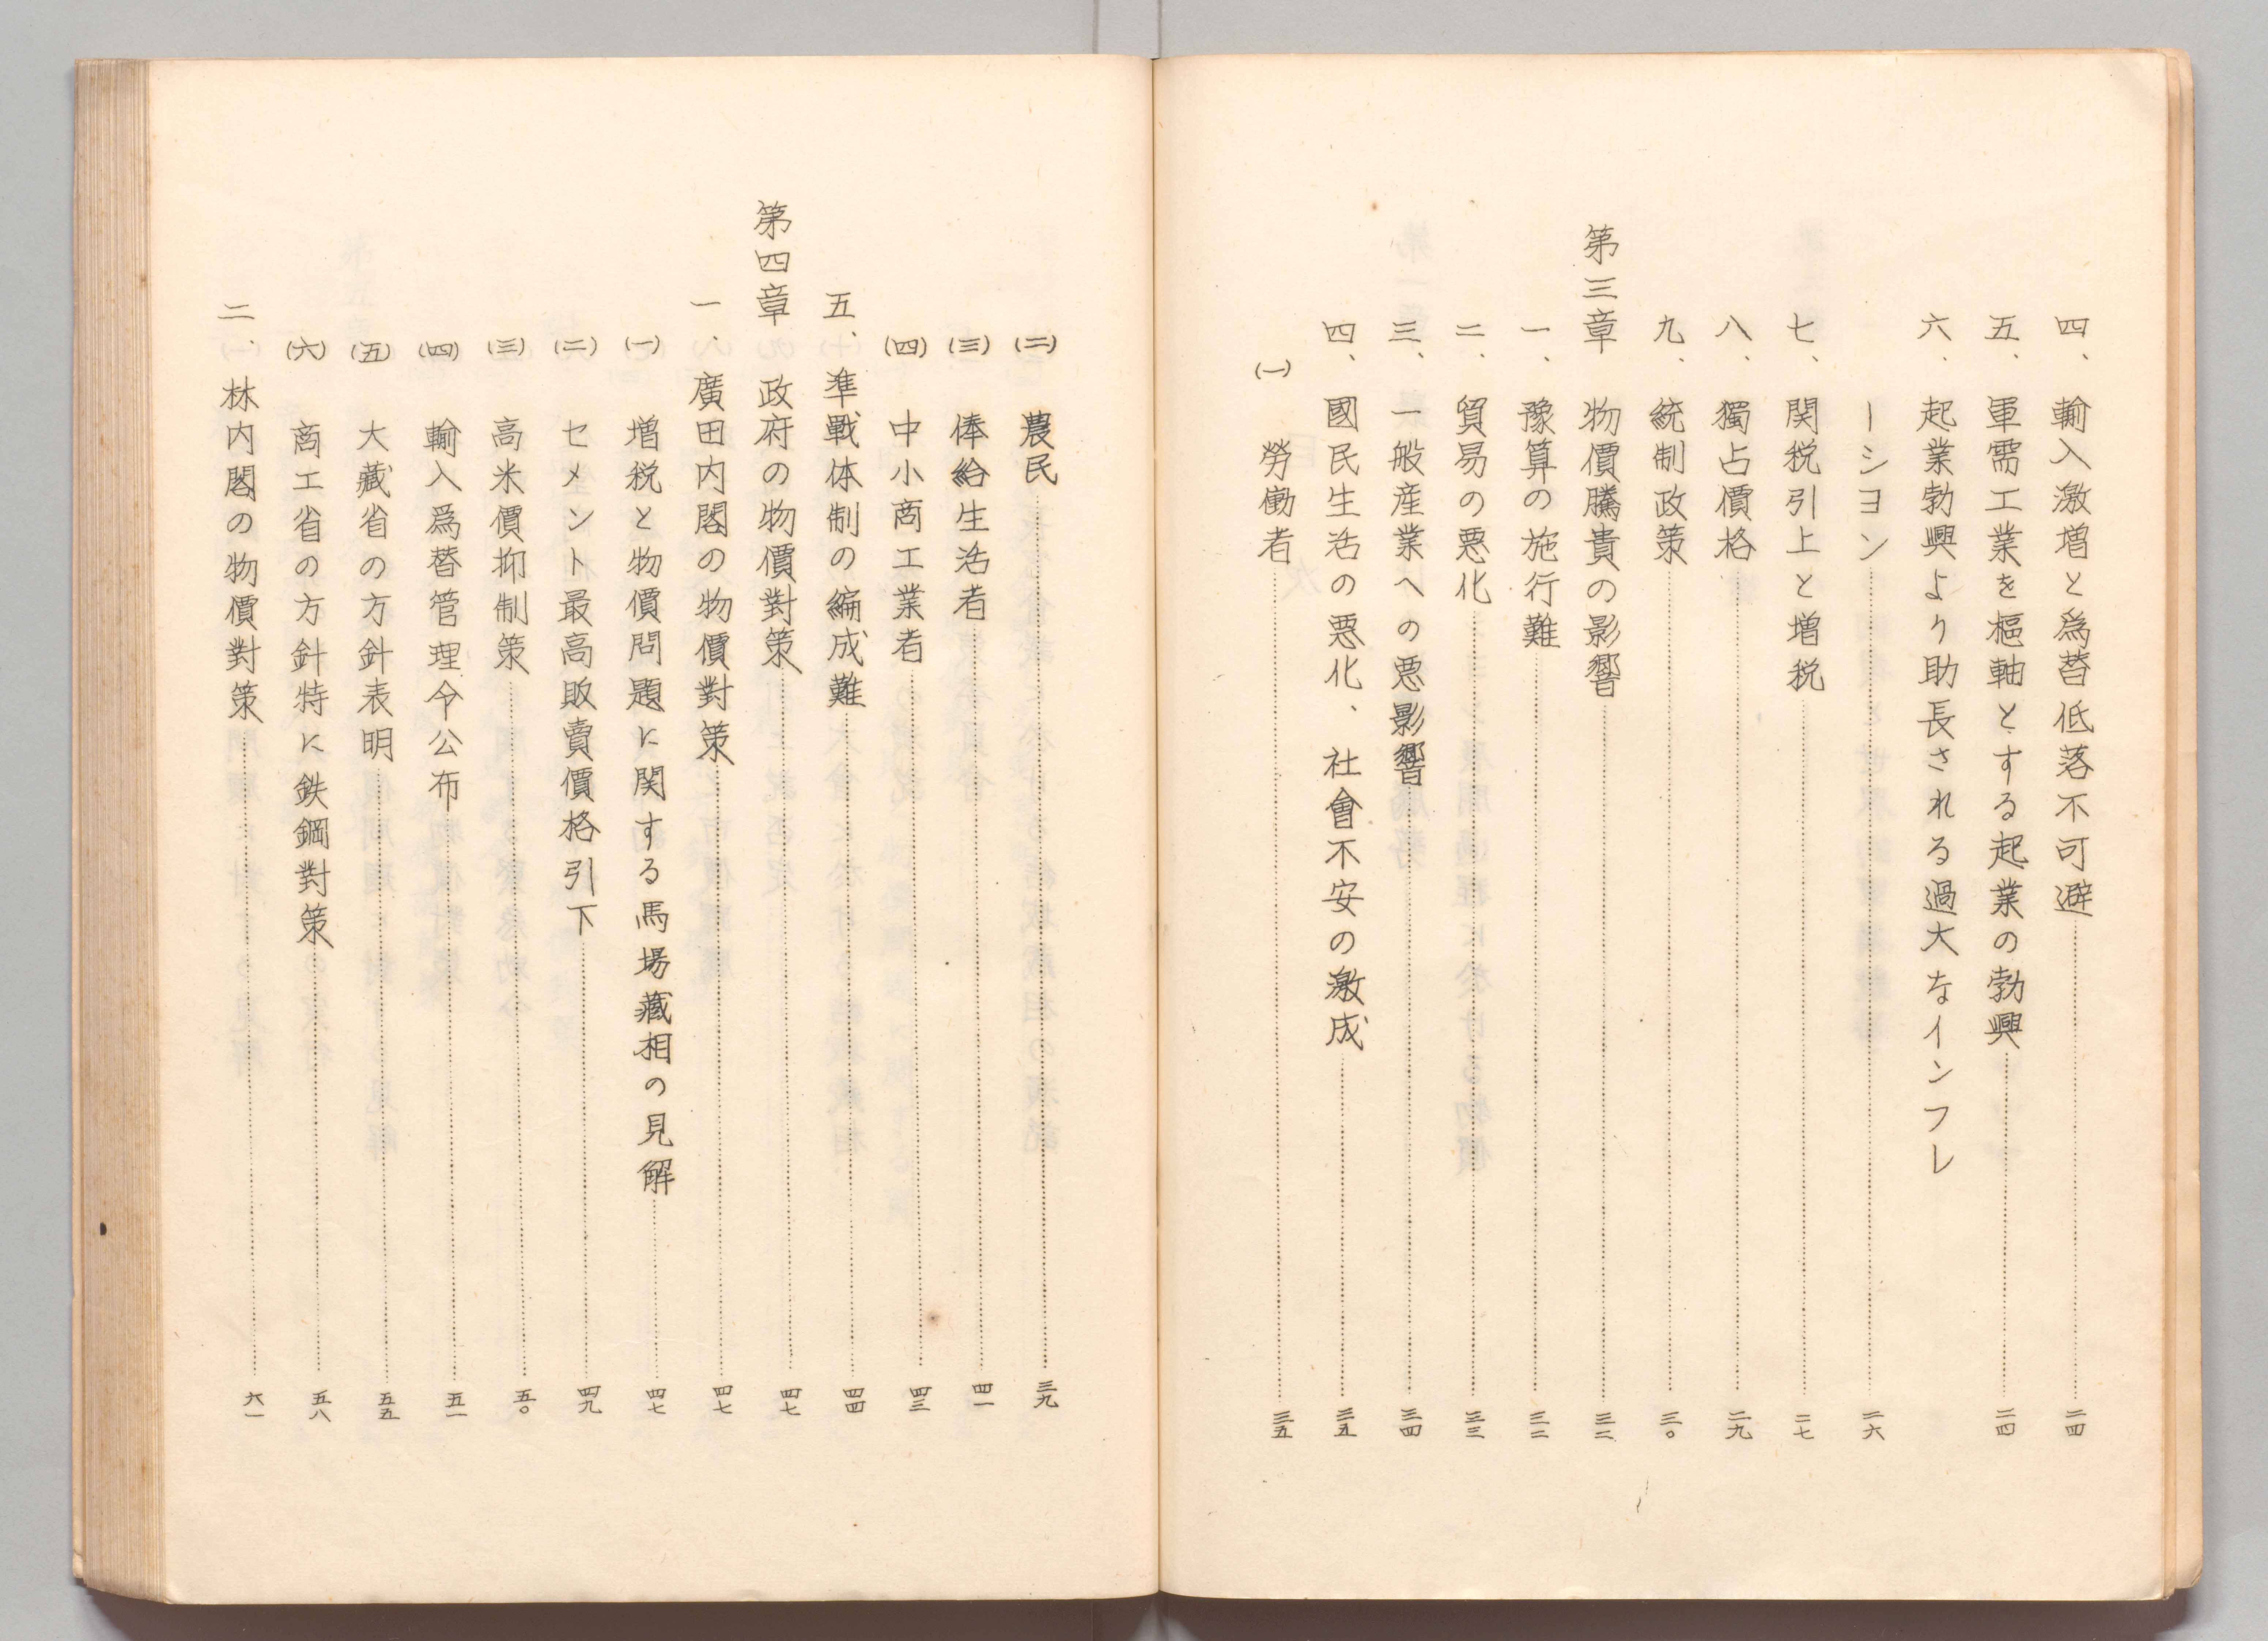 四、輸入激増と爲替低落不可避……二四
五、軍需工業を樞軸とする起業の勃興……二四
六、起業勃興より助長される過大なインフレ
ーシヨン……二六
七、関税引上と増税……二七
八、獨占價格……二九
九、統制政策……三〇
第三章 物價騰貴の影響……三二
一、豫算の施行難……三二
二、貿易の悪化……三三
三、一般産業への悪影響……三四
四、國民生活の悪化、社會不安の激成……三五
(一) 勞働者……三五
(二) 農民……三九
(三) 俸給生活者……四一
(四) 中小商工業者……四三
五、準戰体制の編成難……四四
第四章 政府の物價對策……四七
一、廣田内閣の物價對策……四七
(一) 増税と物價問題に関する馬場藏相の見解……四七
(二) セメント最高販賣價格引下……四九
(三) 高米價抑制策……五〇
(四) 輸入爲替管理令公布……五一
(五) 大藏省の方針表明……五五
(六) 商工省の方針特に鉄鋼對策……五八
二、林内閣の物價對策……六一